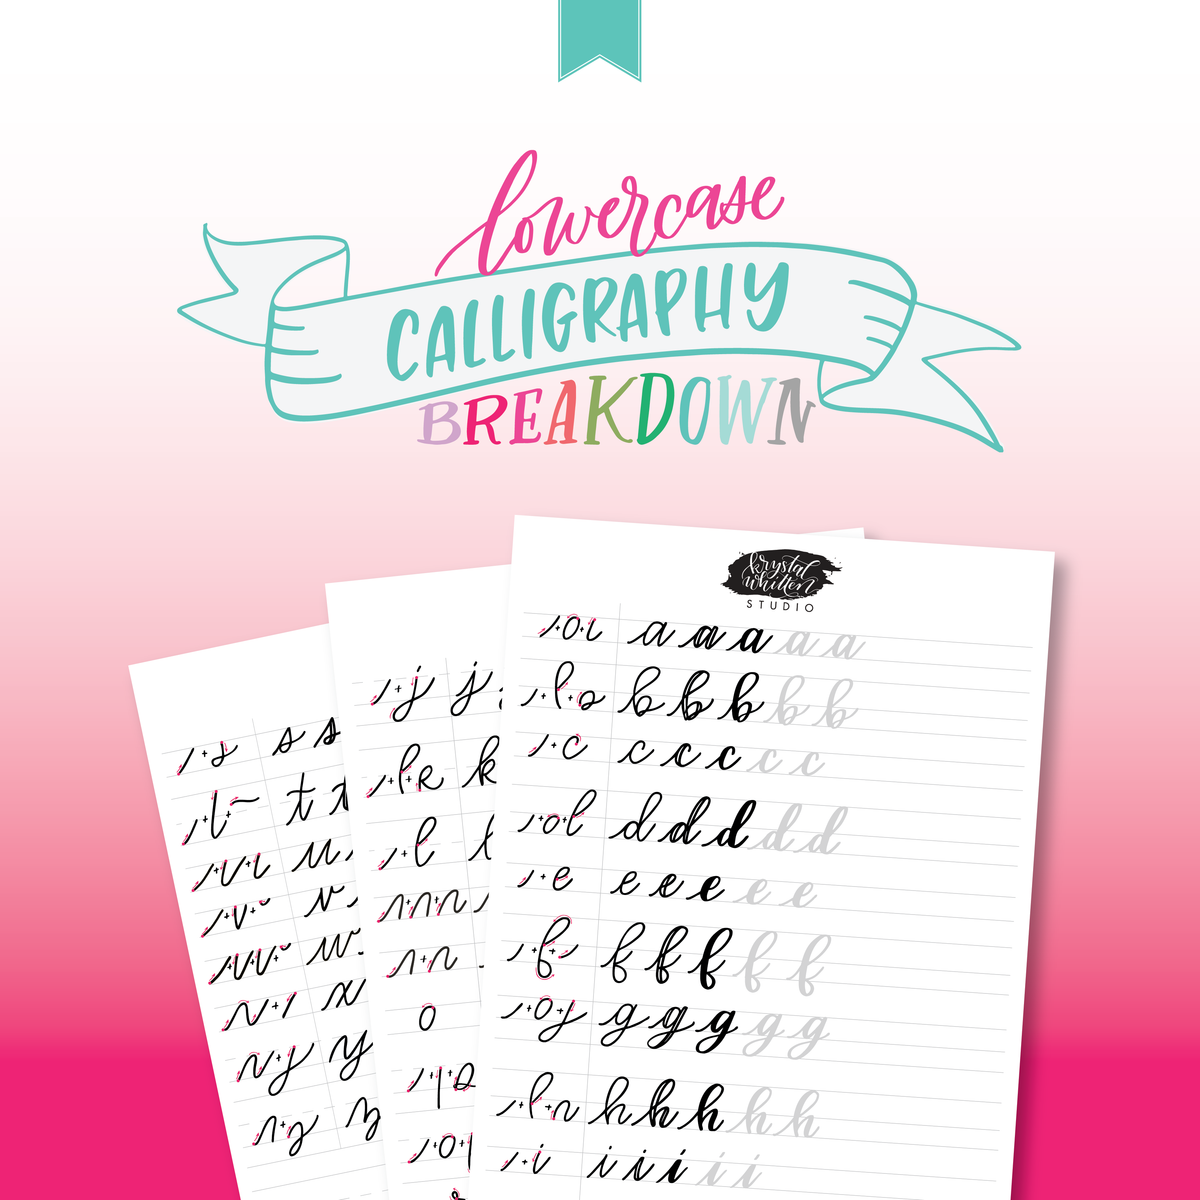 lowercase
CALLIGRAPHY
BREAKDOWN
krystal
whitten
STUDIO
a a a a a
b b b b b
c c c c c
d d d d d
e e e e e
f f f f f
g g g g g
h h h h h
i i i i i
j j
k k
l l
m
n
o
p
s s s
t t t
u u
v v
w w
x x
y y
z z